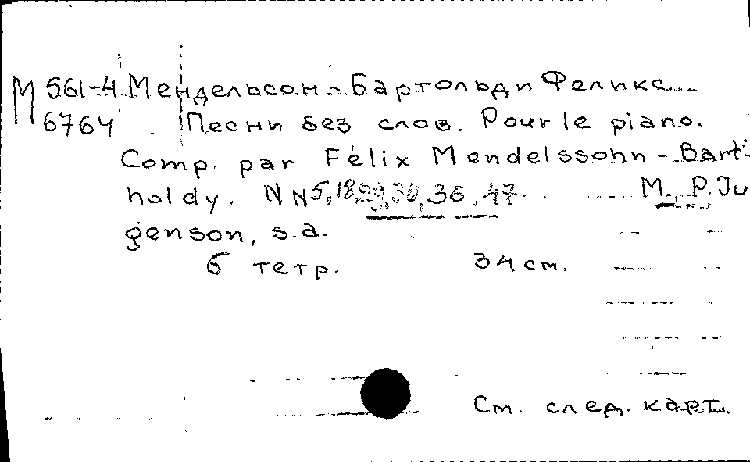 М 561-4 Мендельсон-Бартольди Феликс
6764 Песни без слов. Pour le piano.
Comp. par Félix Mendelssohn-Bart-
holdy. NN 5,18,29,30,36,47. M., P. Ju
genson, s.a.
6 тетр. 34 см.
См. след. карт.